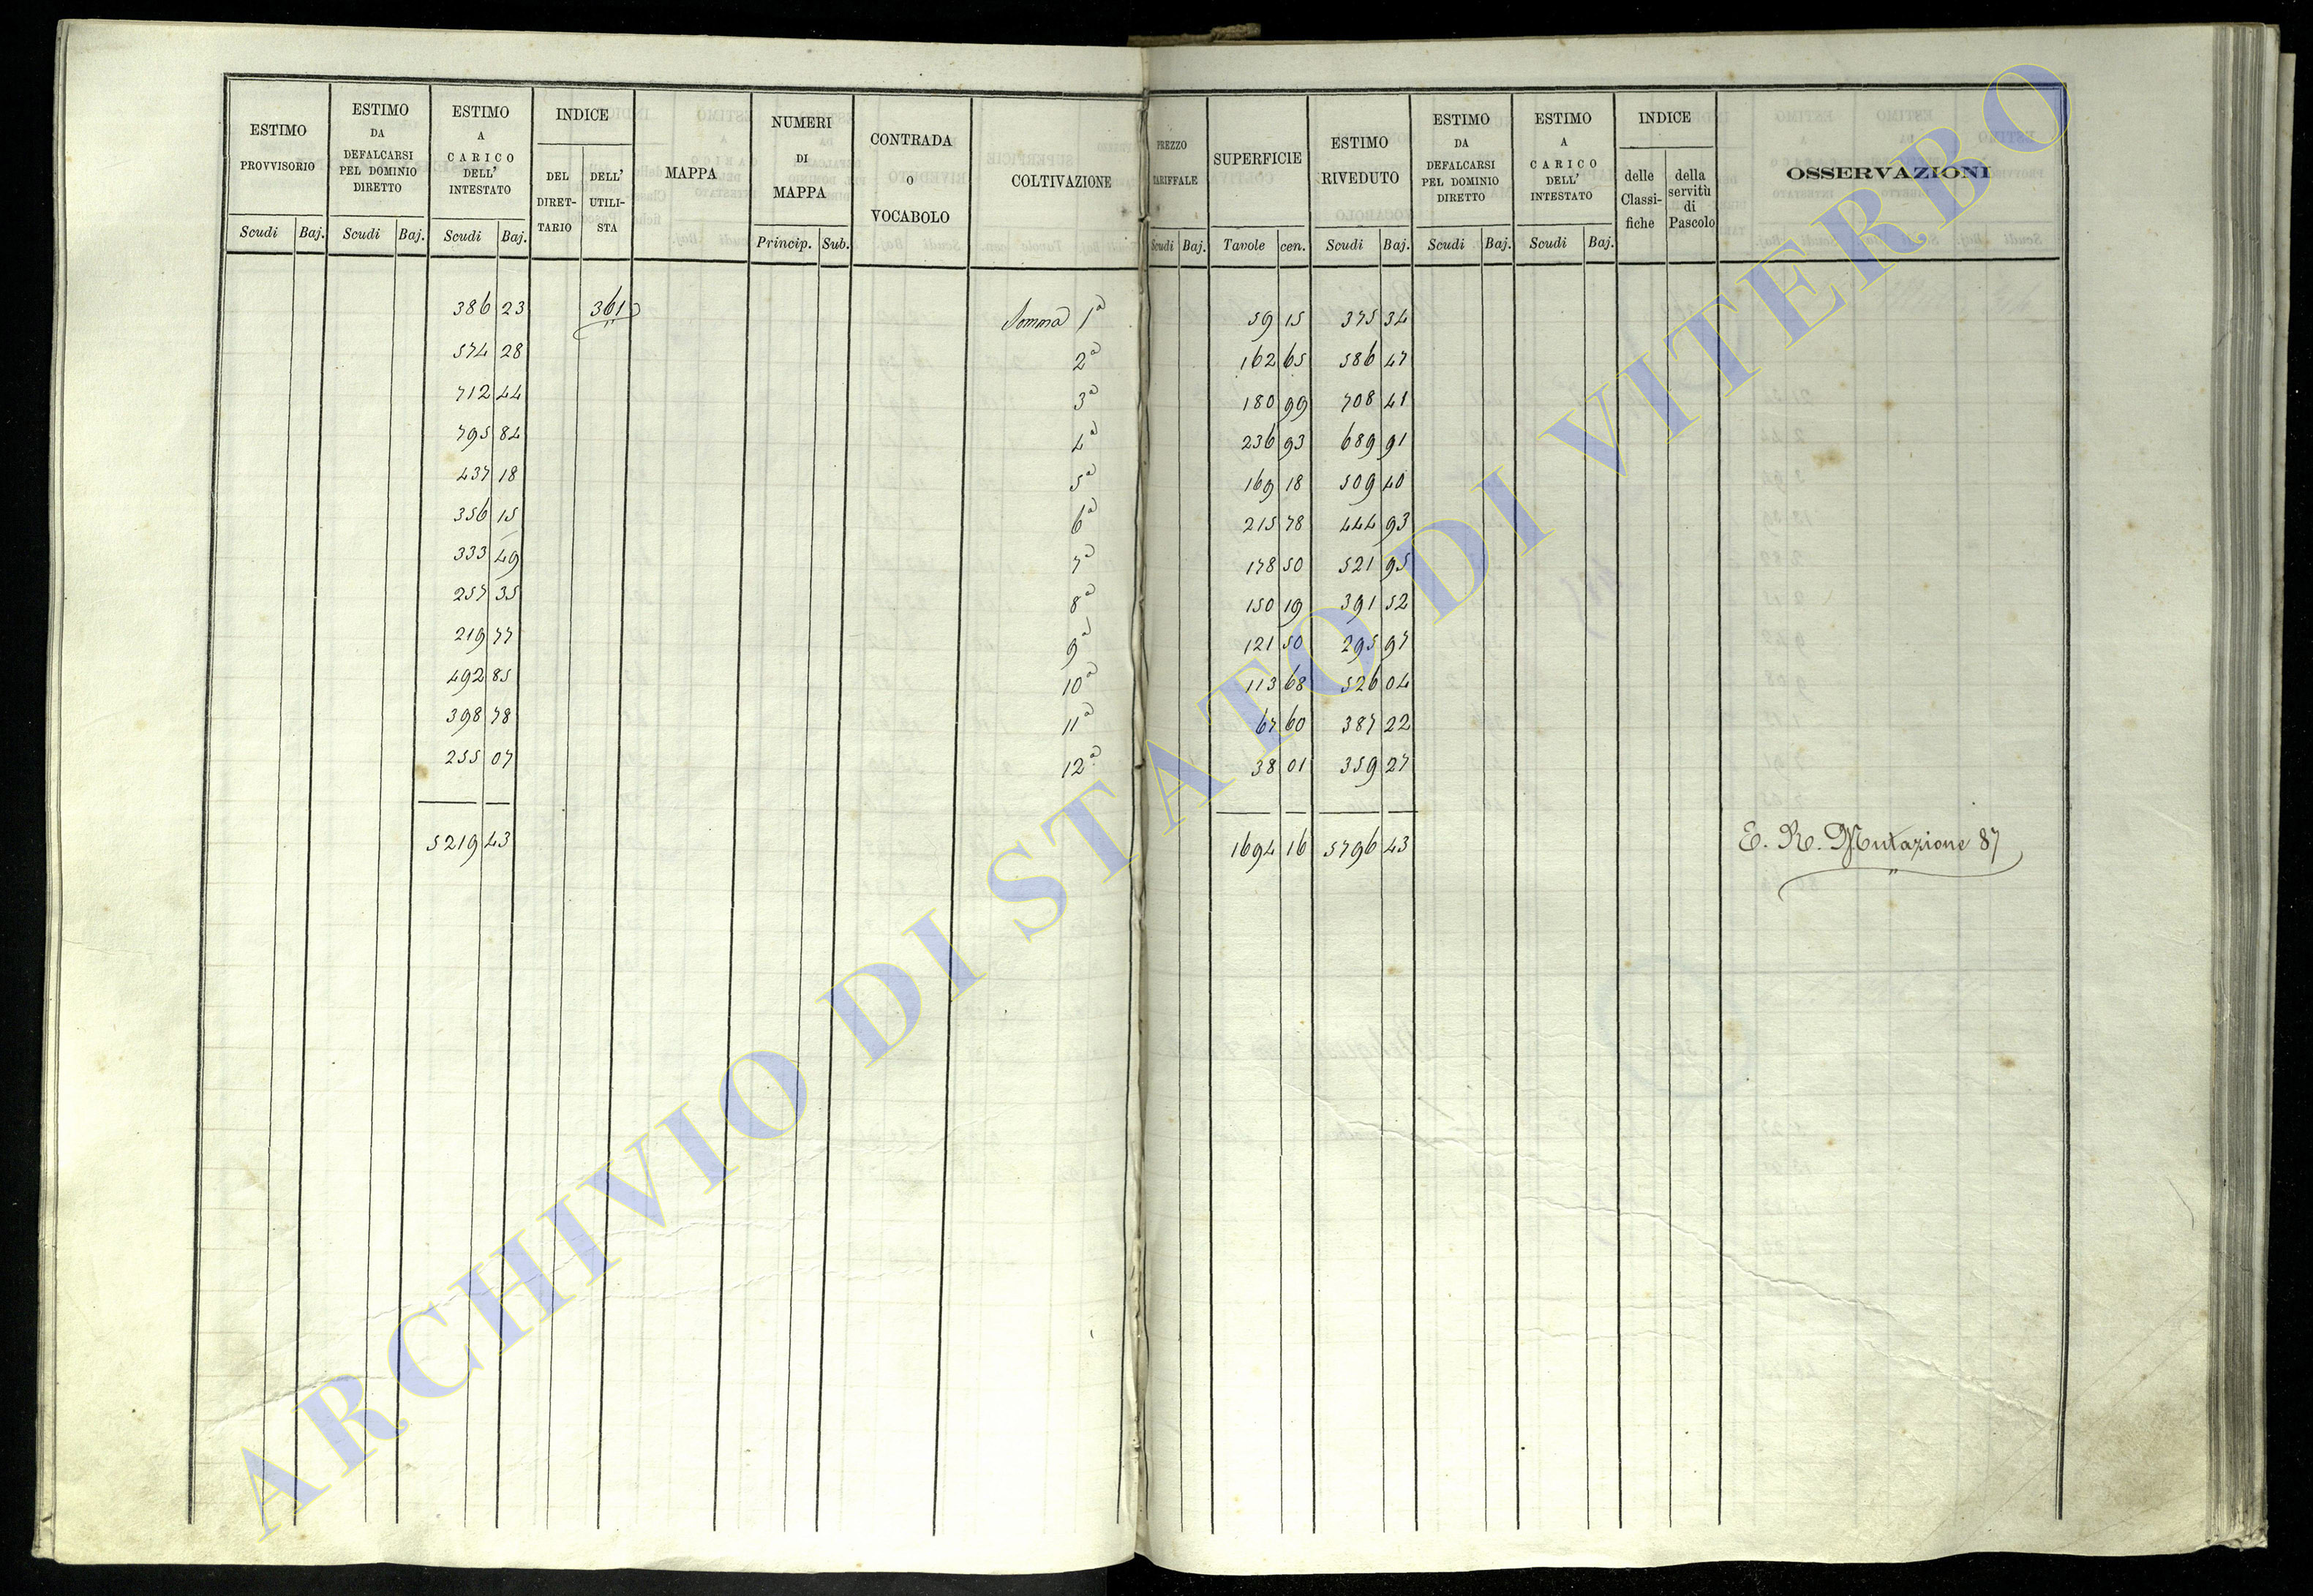 ESTIMO
PROVVISORIO
Scudi Baj.
ESTIMO
DA
DEFALCARSI
PEL DOMINIO
DIRETTO
Scudi Baj.
ESTIMO
A
CARICO
DELL'
INTESTATO
Scudi Baj.
INDICE
DEL
DIRET-
TARIO
DELL'
UTILI-
STA
MAPPA
NUMERI
DI
MAPPA
Princip. Sub.
CONTRADA
O
VOCABOLO
COLTIVAZIONE
PREZZO
TARIFFALE
Scudi Baj.
SUPERFICIE
Tavole cen.
ESTIMO
RIVEDUTO
Scudi Baj.
ESTIMO
DA
DEFALCARSI
PEL DOMINIO
DIRETTO
Scudi Baj.
ESTIMO
A
CARICO
DELL'
INTESTATO
Scudi Baj.
INDICE
delle
Classi-
fiche
della
servitù
di
Pascolo
OSSERVAZIONI
386 23 361 Somma 1ª 59 15 375 34
574 28 2ª 162 65 586 47
712 44 3ª 180 99 708 41
795 84 4ª 236 93 689 91
437 18 5ª 169 18 509 40
356 15 6ª 215 78 444 93
333 49 7ª 178 50 521 95
257 35 8ª 150 19 391 52
219 77 9ª 121 50 295 97
492 85 10ª 113 68 526 04
398 78 11ª 67 60 387 22
255 07 12ª 38 01 359 27
5219 43 1694 16 5796 43 E. R. Mutazione 87
ARCHIVIO DI STATO DI VITERBO